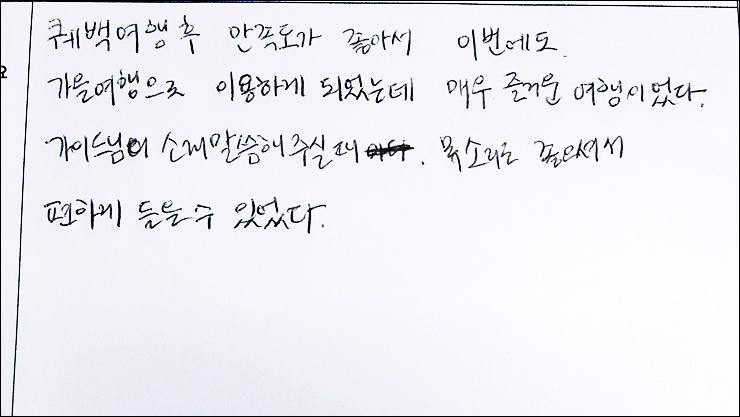 퀘백여행 후 만족도가 좋아서 이번에도
가을여행으로 이용하게 되었는데 매우 즐거운 여행이었다.
가이드님이 소개말씀해주실때 목소리도 좋으셔서
편하게 들을 수 있었다.